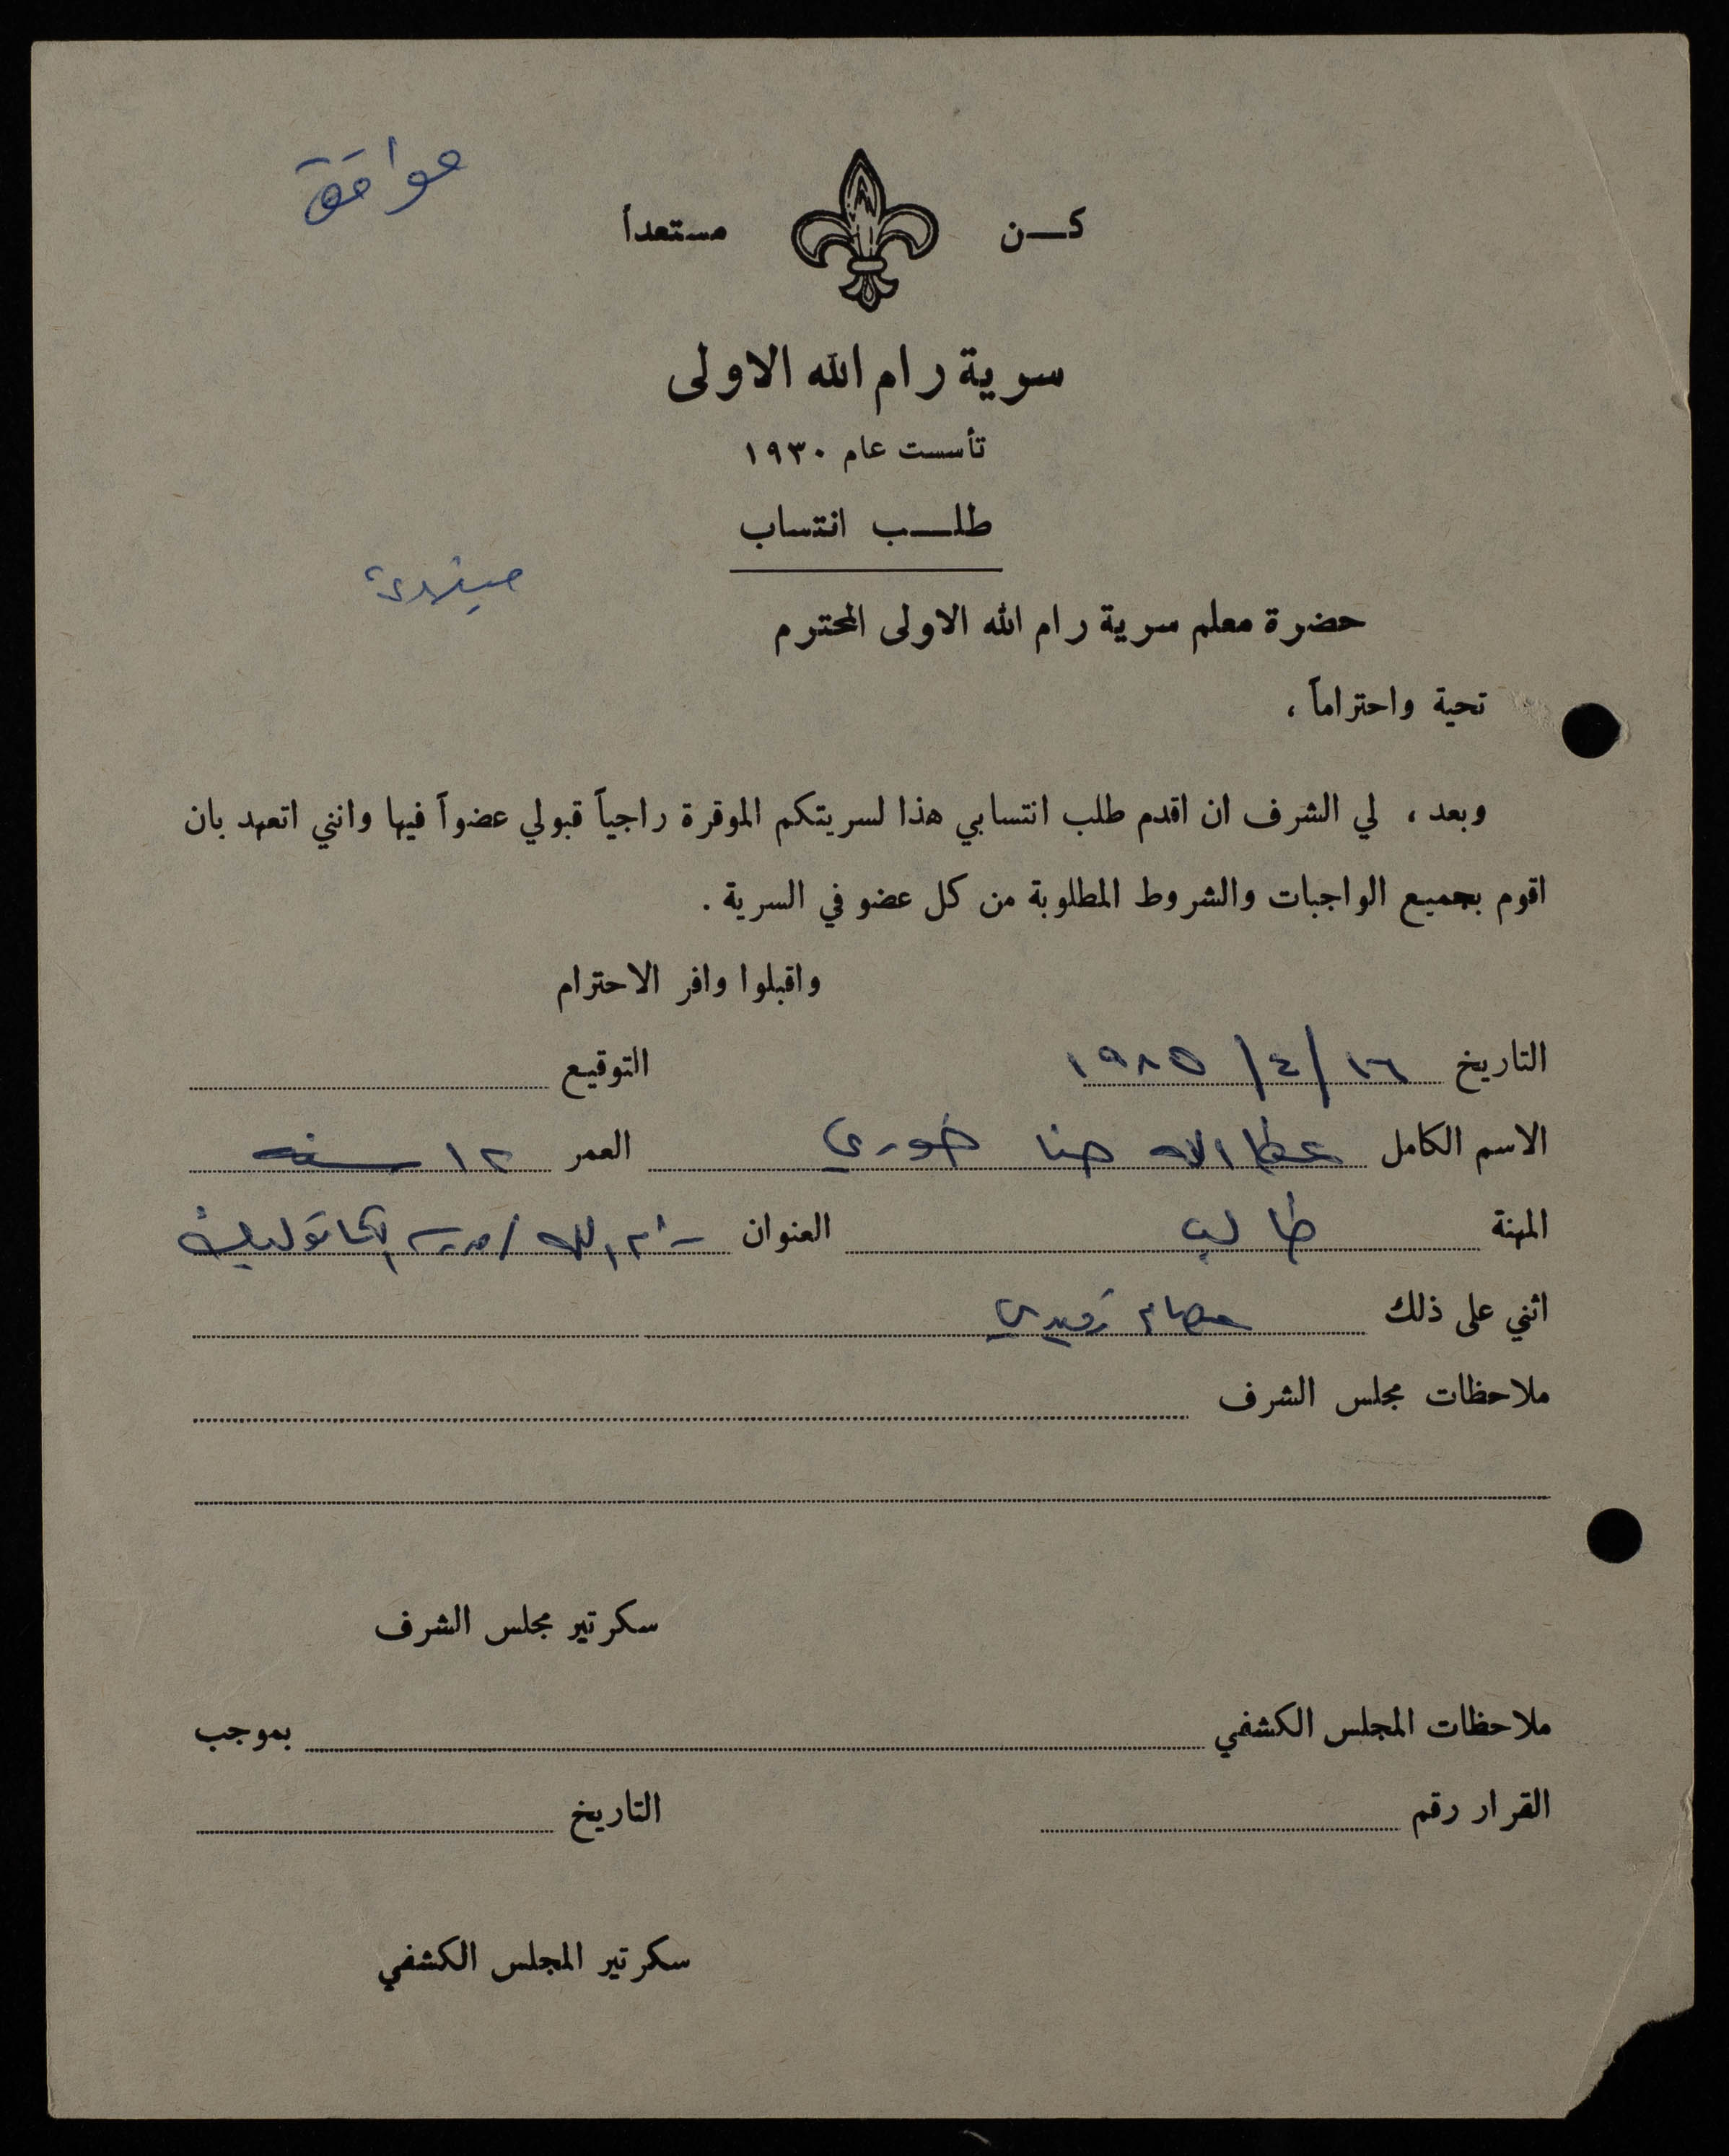 موافق
كـن مستعداً
سرية رام الله الاولى
تأسست عام ١٩٣٠
طلـب انتساب
حضرة معلم سرية رام الله الاولى المحترم
تحية واحتراماً ،
وبعد ، لي الشرف ان اقدم طلب انتسابي هذا لسريتكم الموقرة راجياً قبولي عضواً فيها وانني اتعهد بان
اقوم بجميع الواجبات والشروط المطلوبة من كل عضو في السرية .
واقبلوا وافر الاحترام
التاريخ ١٦/٤/١٩٨٥ التوقيع
الاسم الكامل عطا الله حنا خوري العمر ١٢ سنه
المهنة طالب العنوان رام الله / مدرسة الكاثوليك
اثني على ذلك عصام
ملاحظات مجلس الشرف
سكرتير مجلس الشرف
ملاحظات المجلس الكشفي بموجب
القرار رقم التاريخ
سكرتير المجلس الكشفي